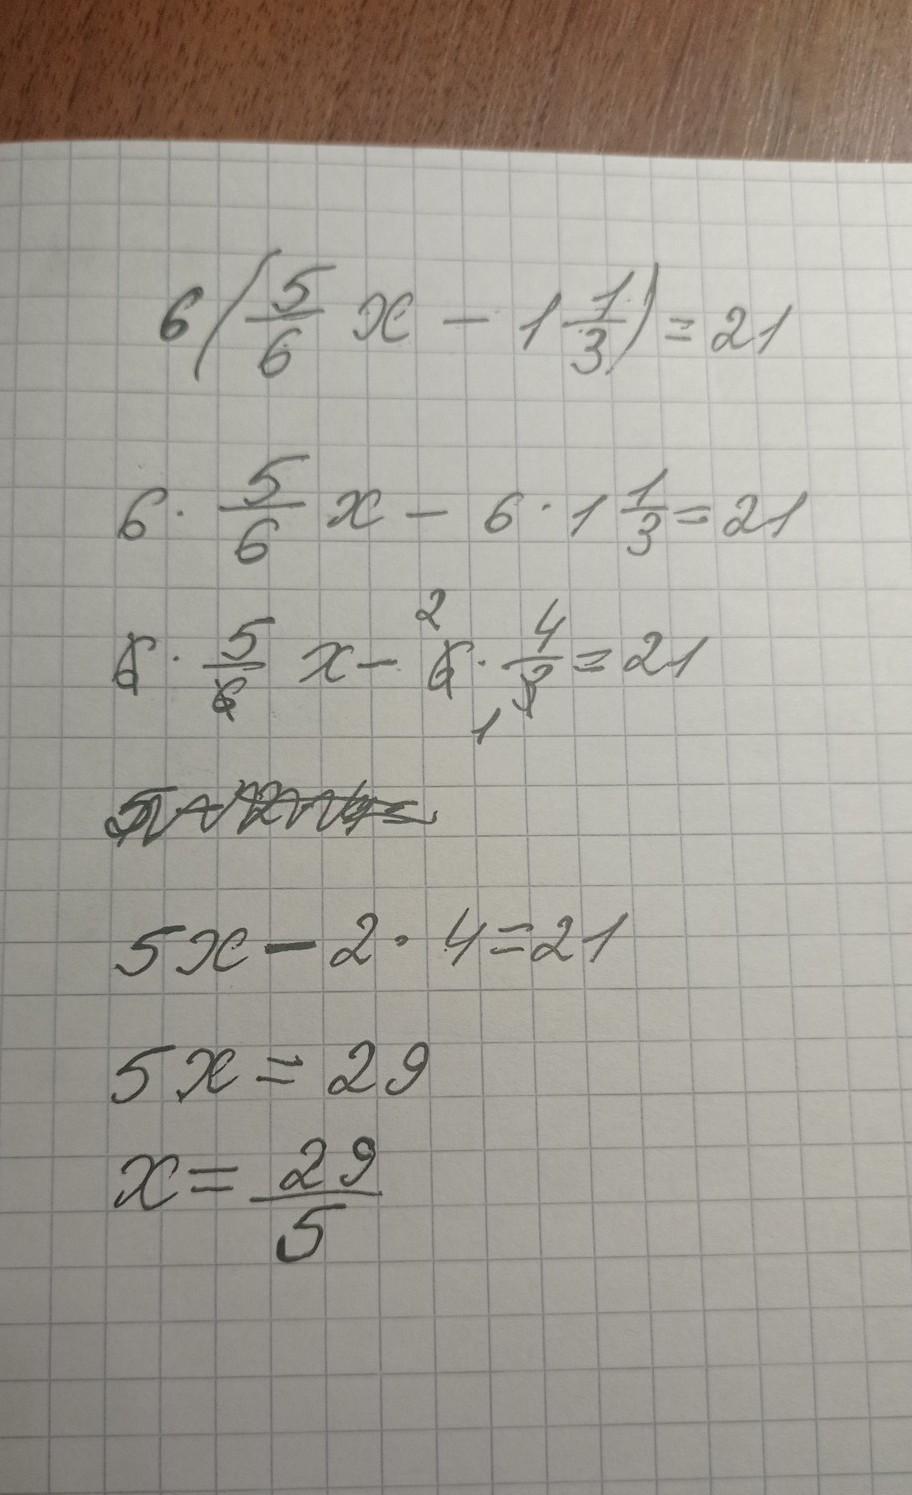 6(5/6 x - 1 1/3) = 21
6 · 5/6 x - 6 · 1 1/3 = 21
6 · 5/6 x - 6 2 · 4/3 1 = 21
5x - 2 · 4 = 21
5x = 29
x = 29/5